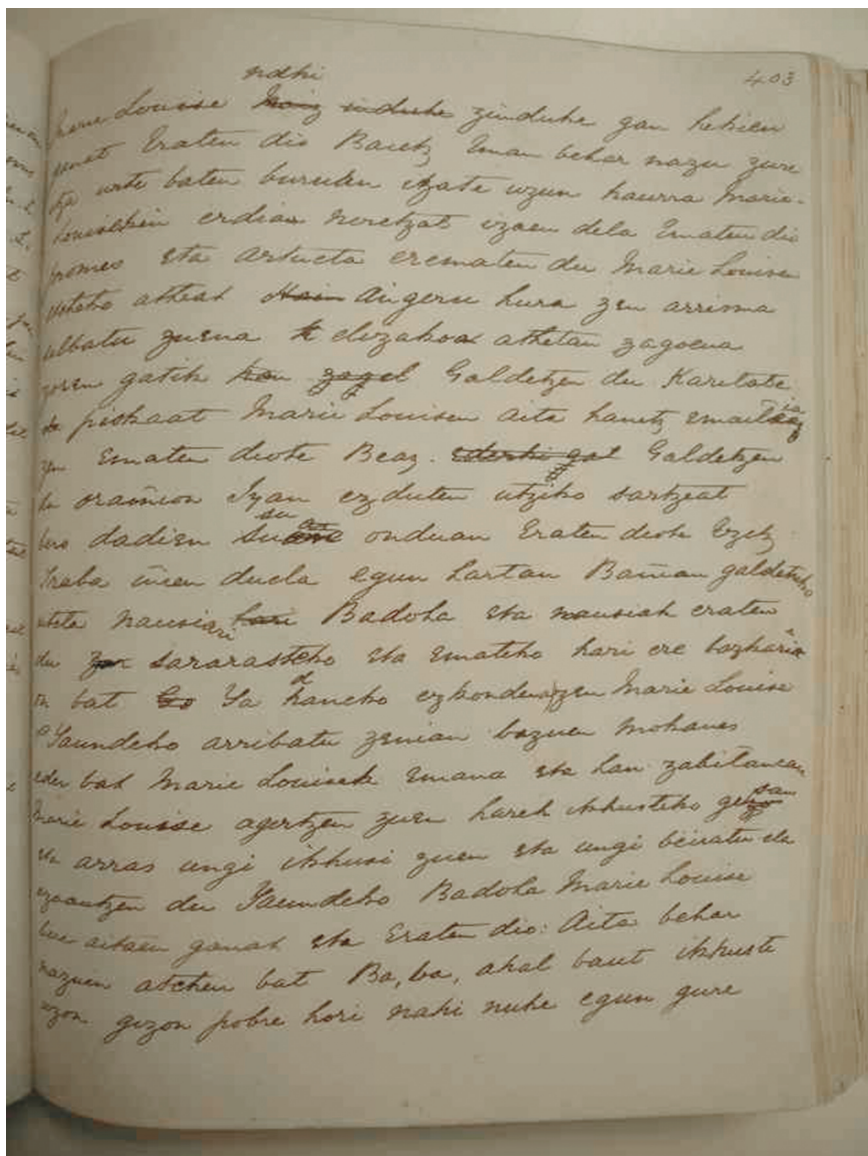 403
ndhi
Marie Louise zinduke gan hekien
ganat Eraten dio Baietz Eman behar nazu zure
urte baten buruten izate uzun haurra Marie-
Louisekin erdian neretzat izaen dela Ematen dio
promes eta artucta erematen du Marie Louisen
atheat Aingeru hura zen arrima
salbatu zuena elizakoa athetan zagoena
zoren gatik Galdetzen du Karitate
piskaat Marie Louisen aita hanitz
zen Ematen diote Beaz. Galdetzen
du oraiñion Iyan ezduten utziko sartzeat
bero dadien su onduan Eraten diote Ezetz
Traba iñen ducla egun hartan Bañian galdetcko
utela nausiari Badoha eta nausiak eraten
du sararasteko eta Emateko hari ere bazkari
on bat Ya hancko ezkondua zen Marie Louise
Yaundeko arribatu zenian bazuen mokanes
eder bat Marie Louisek Emana eta han zabilancan
Marie Louise agertzen zuen harek ikhusteko gisan
eta arras ungi ikhusi zuen eta ungi beiratu eta
ezautzen du Yaundeko Badoha Marie Louise
bere aitaen ganat eta Eraten dio: Aita behar
nazuen atchen bat Ba, ba, ahal baut ikhuste
uzun gizon pobre hori nahi nuke egun gure